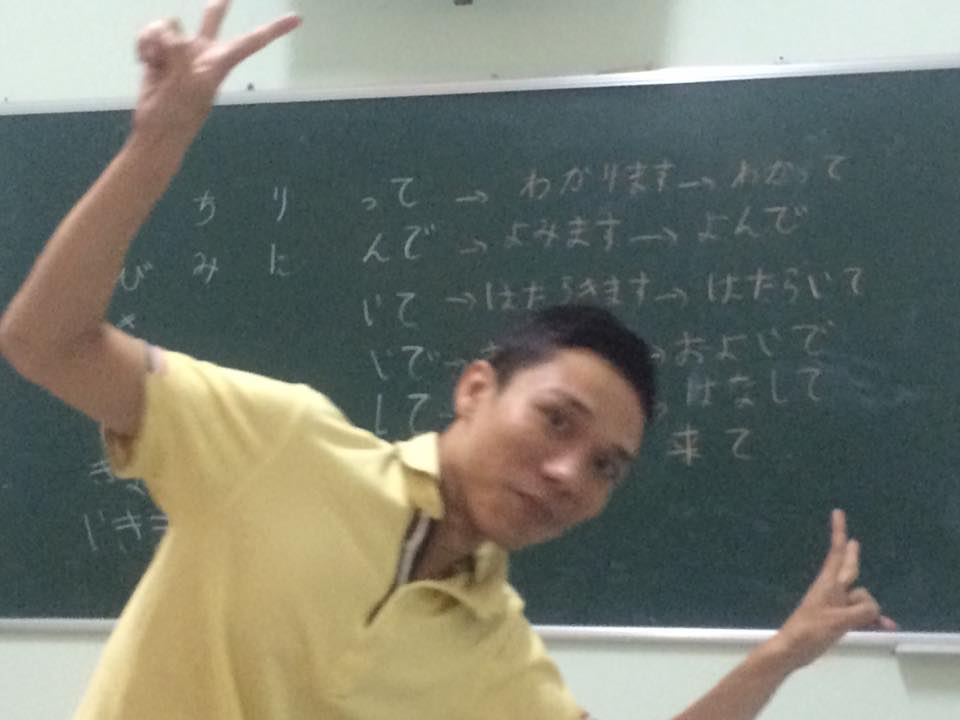 ち り って → わかります → わかって
び み に んで → よみます → よんで
いて → はたらきます → はたらいて
いで → およいで
して はなして
来て